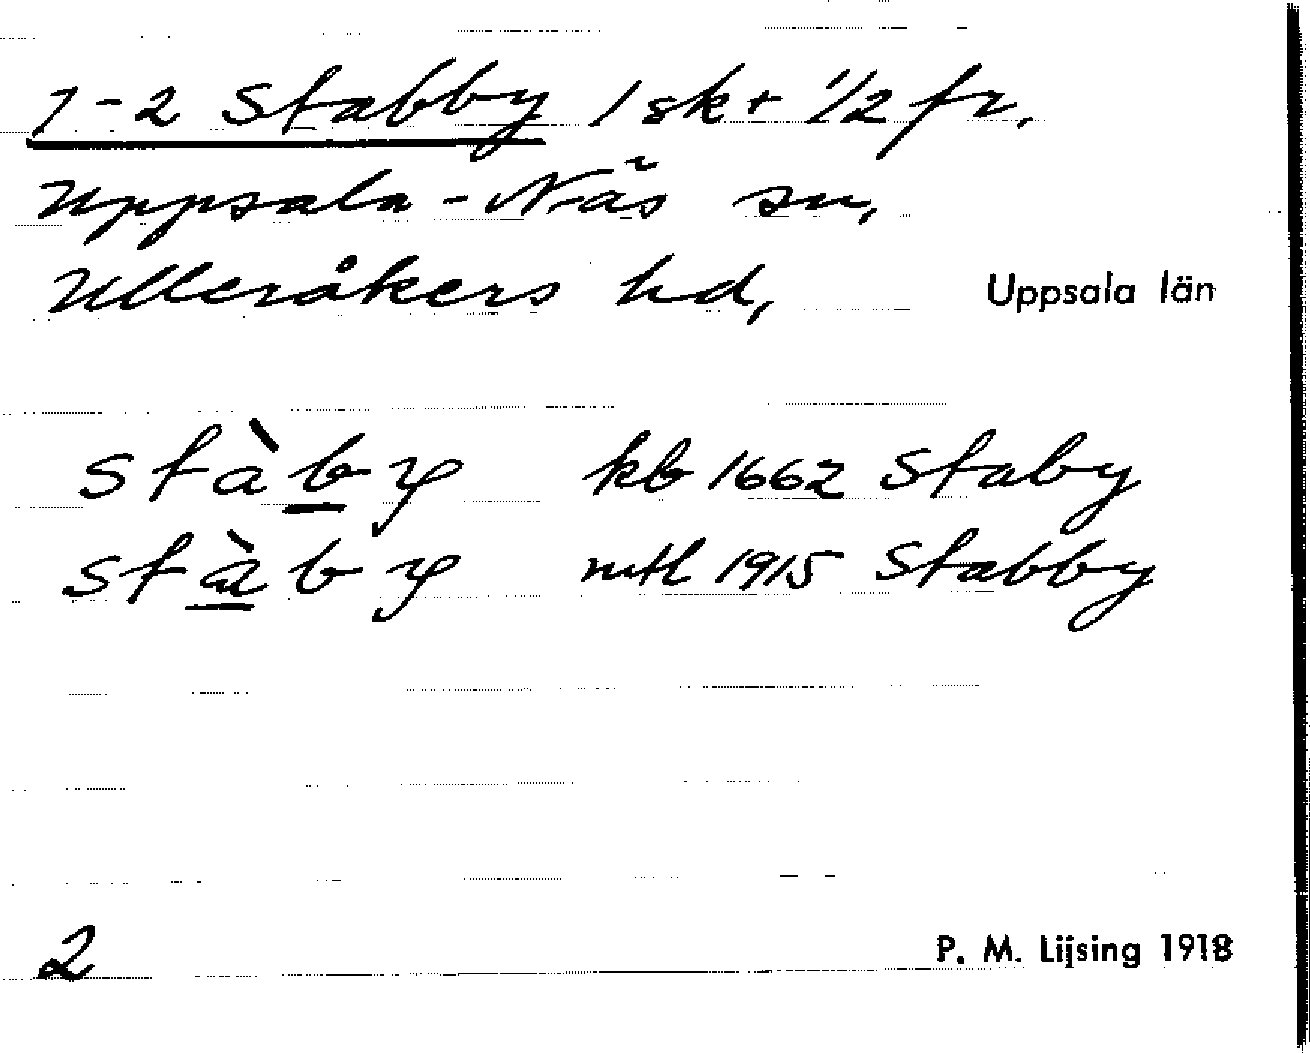 1-2 Stabby 1 sk + 1/2 fr,
Uppsala-Näs sn,
Ulleråkers hd, Uppsala län
stàby kb 1662 Staby
stàby mtl 1915 Stabby
2 P. M. Lijsing 1918